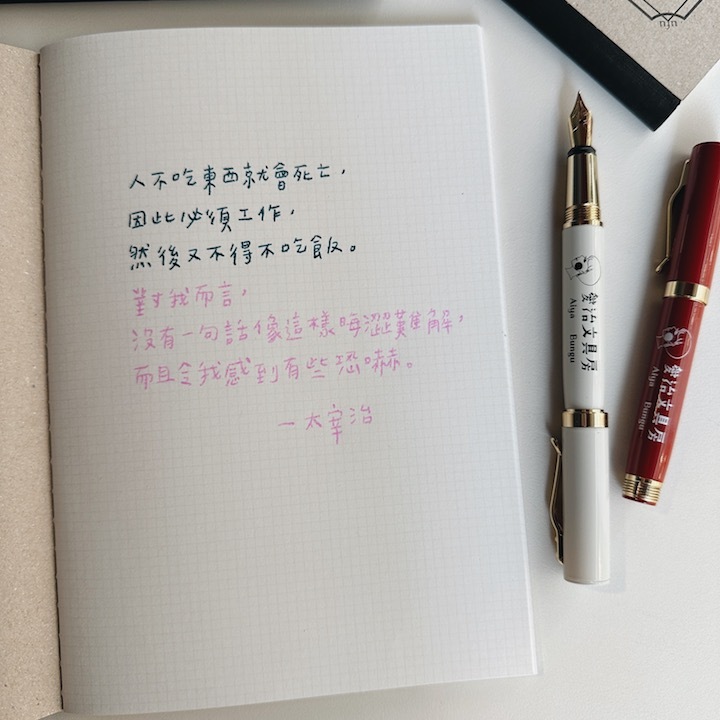 人不吃東西就會死亡，
因此必須工作，
然後又不得不吃飯。
對我而言，
沒有一句話像這樣晦澀難解，
而且令我感到有些恐嚇。
—太宰治
愛治文具房
Aiya Bungu
愛治文具房
Aiya Bungu